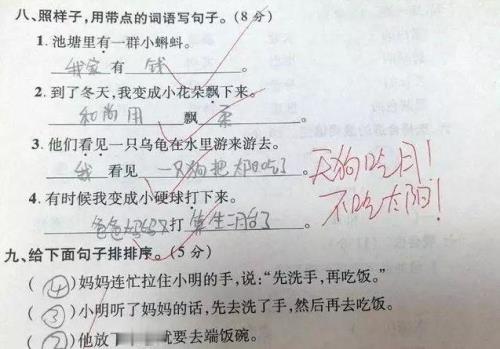 八、照样子,用带点的词语写句子。(8分)
1. 池塘里有一群小蝌蚪。
我家 有 钱 。
2. 到了冬天,我变成小花朵飘下来。
和尚用 飘柔 。
3. 他们看见一只乌龟在水里游来游去。
我 看见 一只狗把太阳吃了 。
天狗吃月!
不吃太阳!
4. 有时候我变成小硬球打下来。
爸爸妈妈又打 算生二胎了 。
九、给下面句子排排序。(5分)
(④)妈妈连忙拉住小明的手,说:“先洗手,再吃饭。”
(③)小明听了妈妈的话,先去洗了手,然后再去吃饭。
(②)他放 就要去端饭碗。